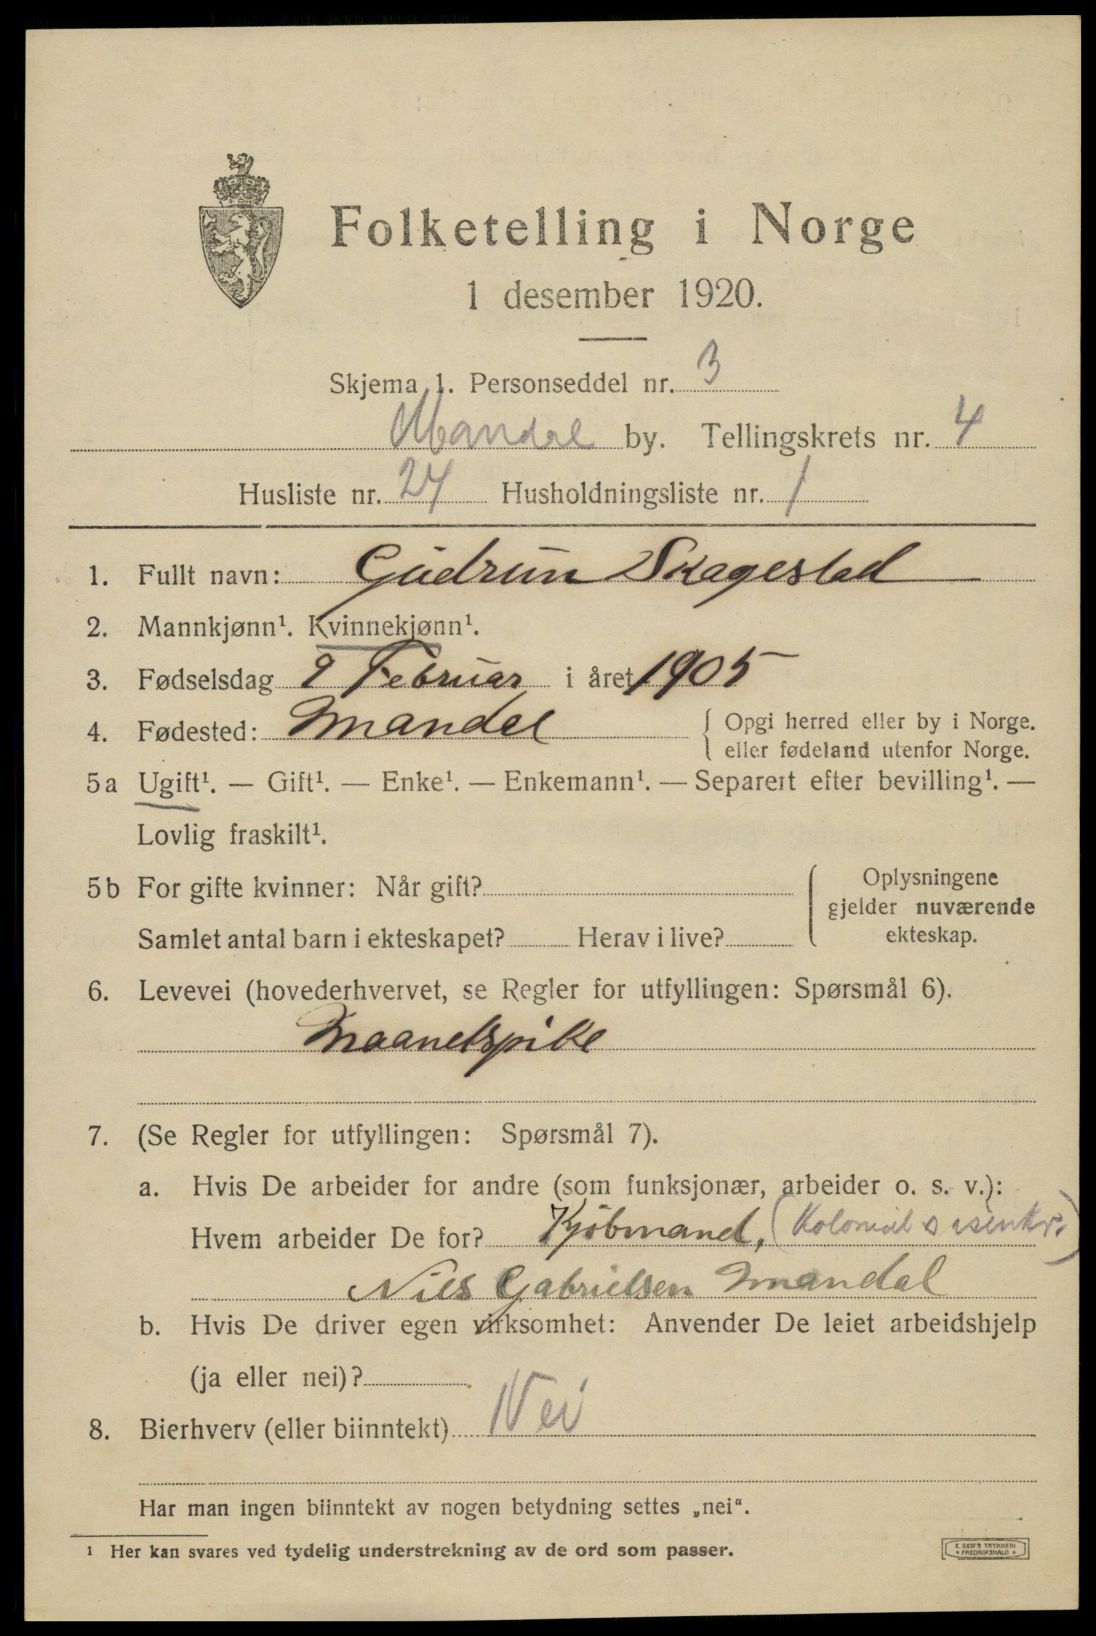 Folketelling i Norge
1 desember 1920.
Skjema 1. Personseddel nr. 3
Mandal by. Tellingskrets nr. 4
Husliste nr. 24 Husholdningsliste nr. 1
1. Fullt navn: Gudrun Skagestad
2. Mannkjønn¹. Kvinnekjønn¹.
3. Fødselsdag 9 Februar i året 1905
4. Fødested: Mandal { Opgi herred eller by i Norge.
eller fødeland utenfor Norge.
5a Ugift¹. — Gift¹. — Enke¹. — Enkemann¹. — Separert efter bevilling¹. —
Lovlig fraskilt¹.
5b For gifte kvinner: Når gift?
Samlet antal barn i ekteskapet? Herav i live?
{ Oplysningene
gjelder nuværende
ekteskap.
6. Levevei (hovederhvervet, se Regler for utfyllingen: Spørsmål 6).
Maanetspike
7. (Se Regler for utfyllingen: Spørsmål 7).
a. Hvis De arbeider for andre (som funksjonær, arbeider o. s. v.):
Hvem arbeider De for? Kjøbmand, (Kolonial &
Nils Gabrielsen Mandal
b. Hvis De driver egen virksomhet: Anvender De leiet arbeidshjelp
(ja eller nei)?
8. Bierhverv (eller biinntekt) Nei
Har man ingen biinntekt av nogen betydning settes „nei“.
¹ Her kan svares ved tydelig understrekning av de ord som passer.
E. SEM'S TRYKKERI
* FREDRIKSHALD *